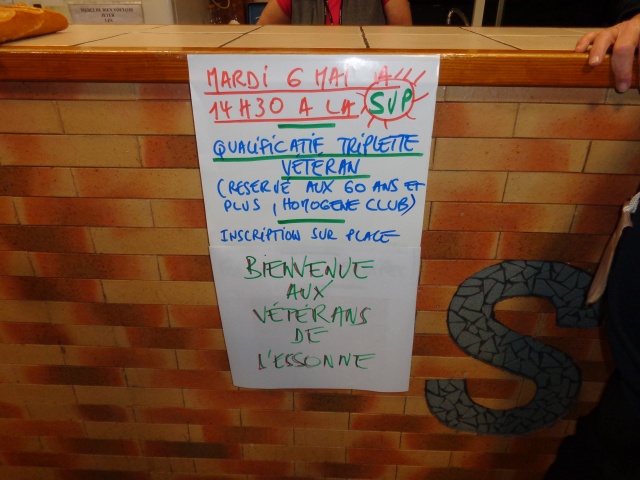 MARDI 6 MAI A
14H30 A LA SVP
QUALIFICATIF TRIPLETTE
VETERAN
(RESERVE AUX 60 ANS ET
PLUS, HOMOGENE CLUB)
INSCRIPTION SUR PLACE
BIENVENUE
AUX
VÉTÉRANS
DE
L'ESSONNE
S